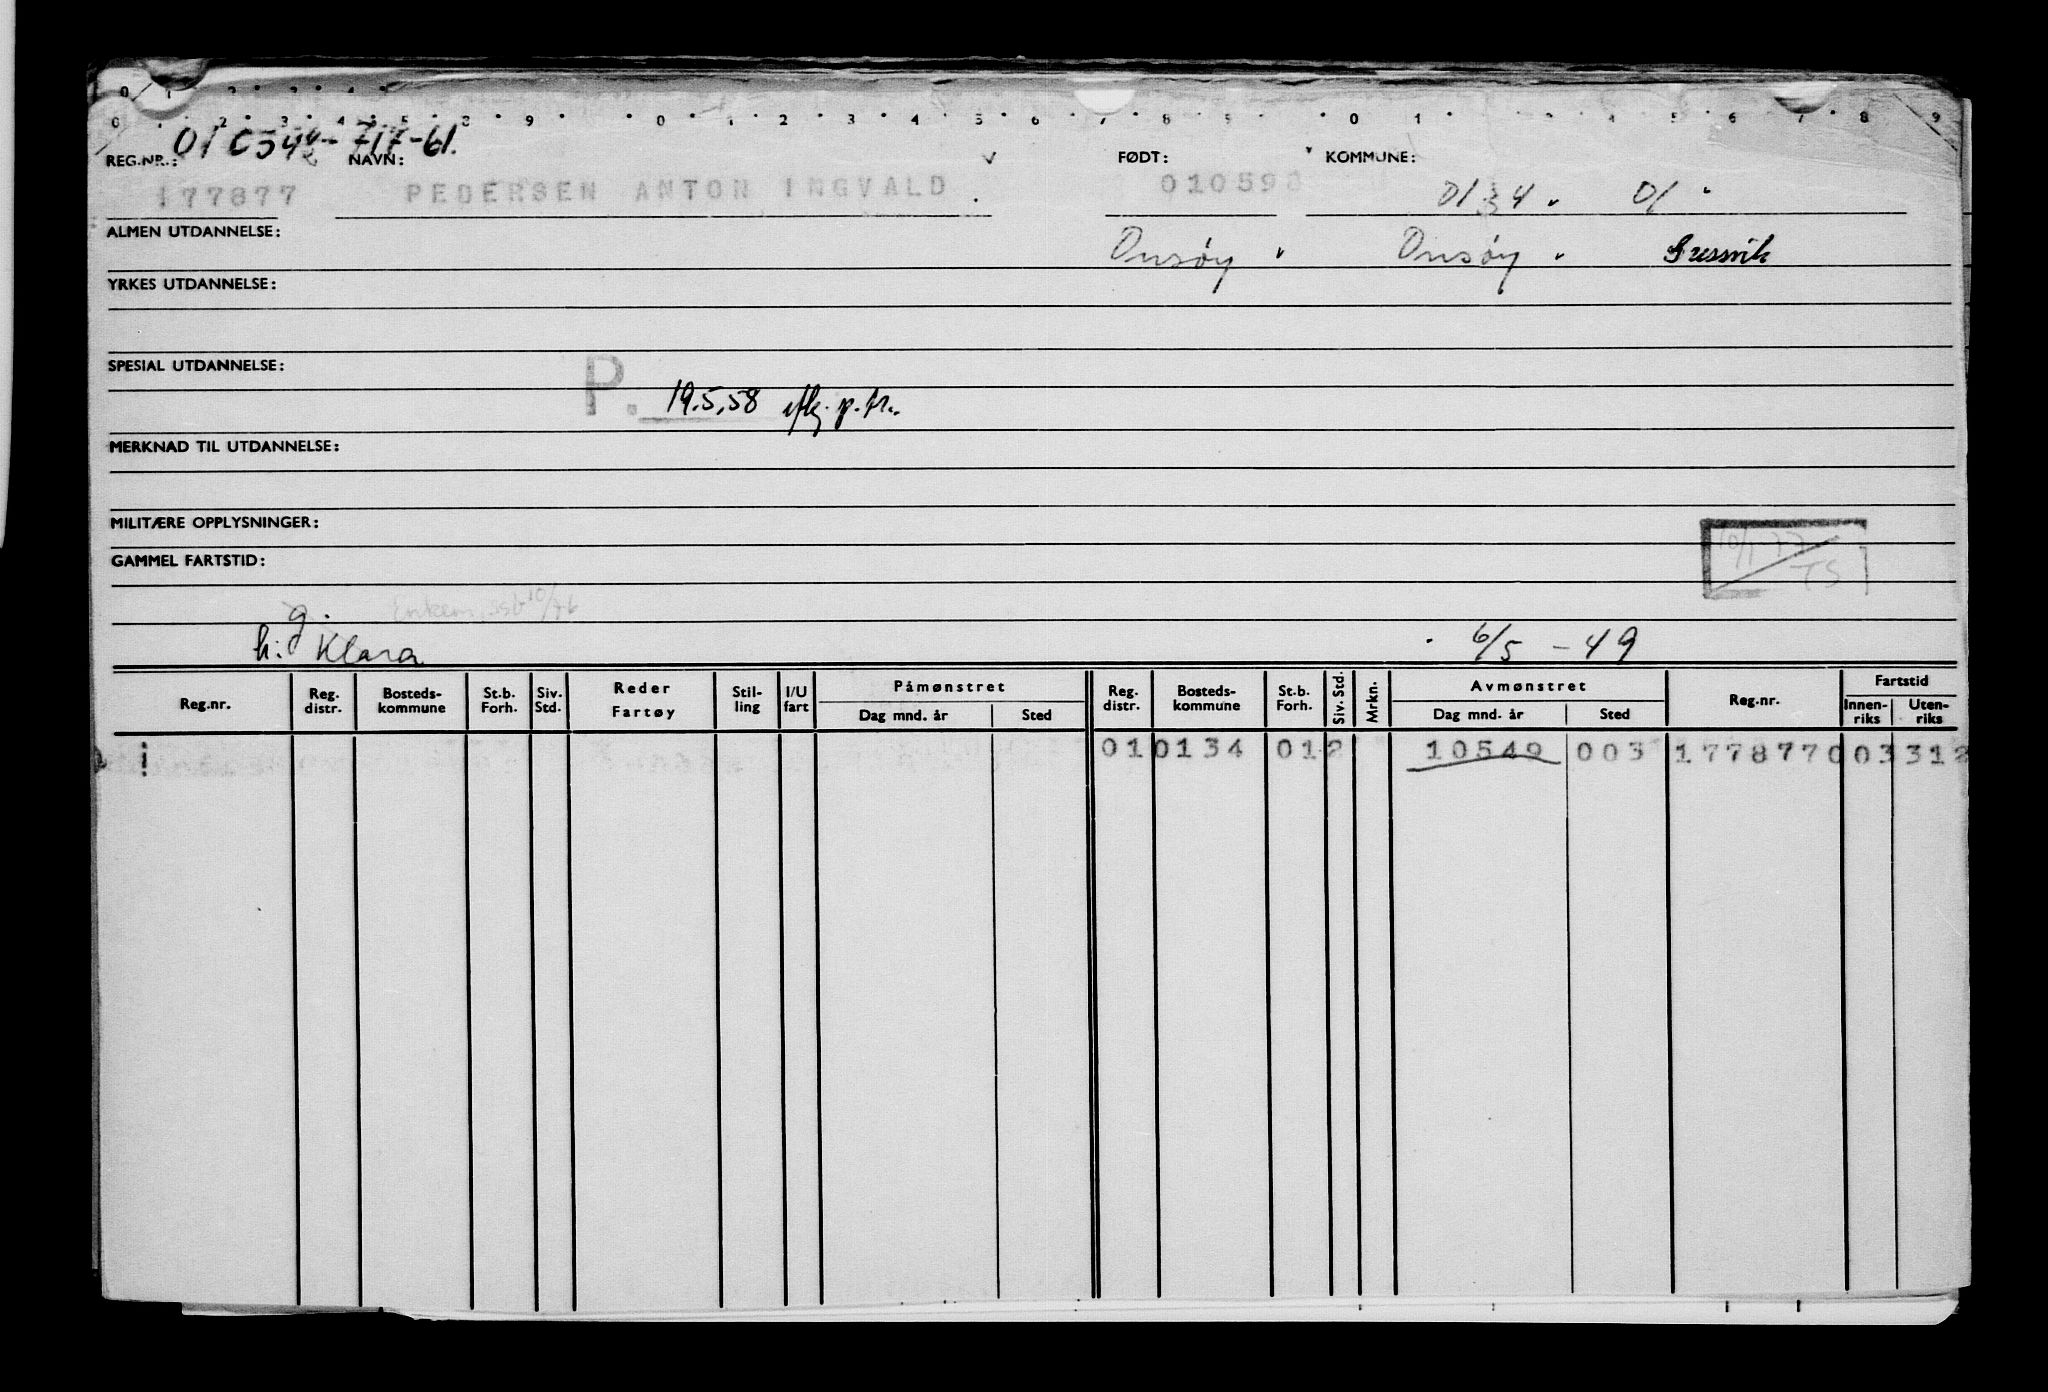 REG.NR.: NAVN: FØDT: KOMMUNE:
177877 PEDERSEN ANTON INGVALD 01059 0134 01
ALMEN UTDANNELSE: Onsøy Onsøy Gressvik
YRKES UTDANNELSE:
SPESIAL UTDANNELSE:
P. 19.5.58
MERKNAD TIL UTDANNELSE:
MILITÆRE OPPLYSNINGER:
10/1-77
TS
GAMMEL FARTSTID:
g.
h: Klara 6/5 - 49
Reg.nr. Reg. distr. Bosteds- kommune St.b. Forh. Siv. Std. Reder Fartøy Stil- ling I/U fart Påmønstret Dag mnd. år Sted Reg. distr. Bosteds- kommune St.b. Forh. Siv. Std. Mrkn. Avmønstret Dag mnd. år Sted Reg.nr. Fartstid Innen- riks Uten- riks
01 0134 01 2 10549 003 1778770 03 312